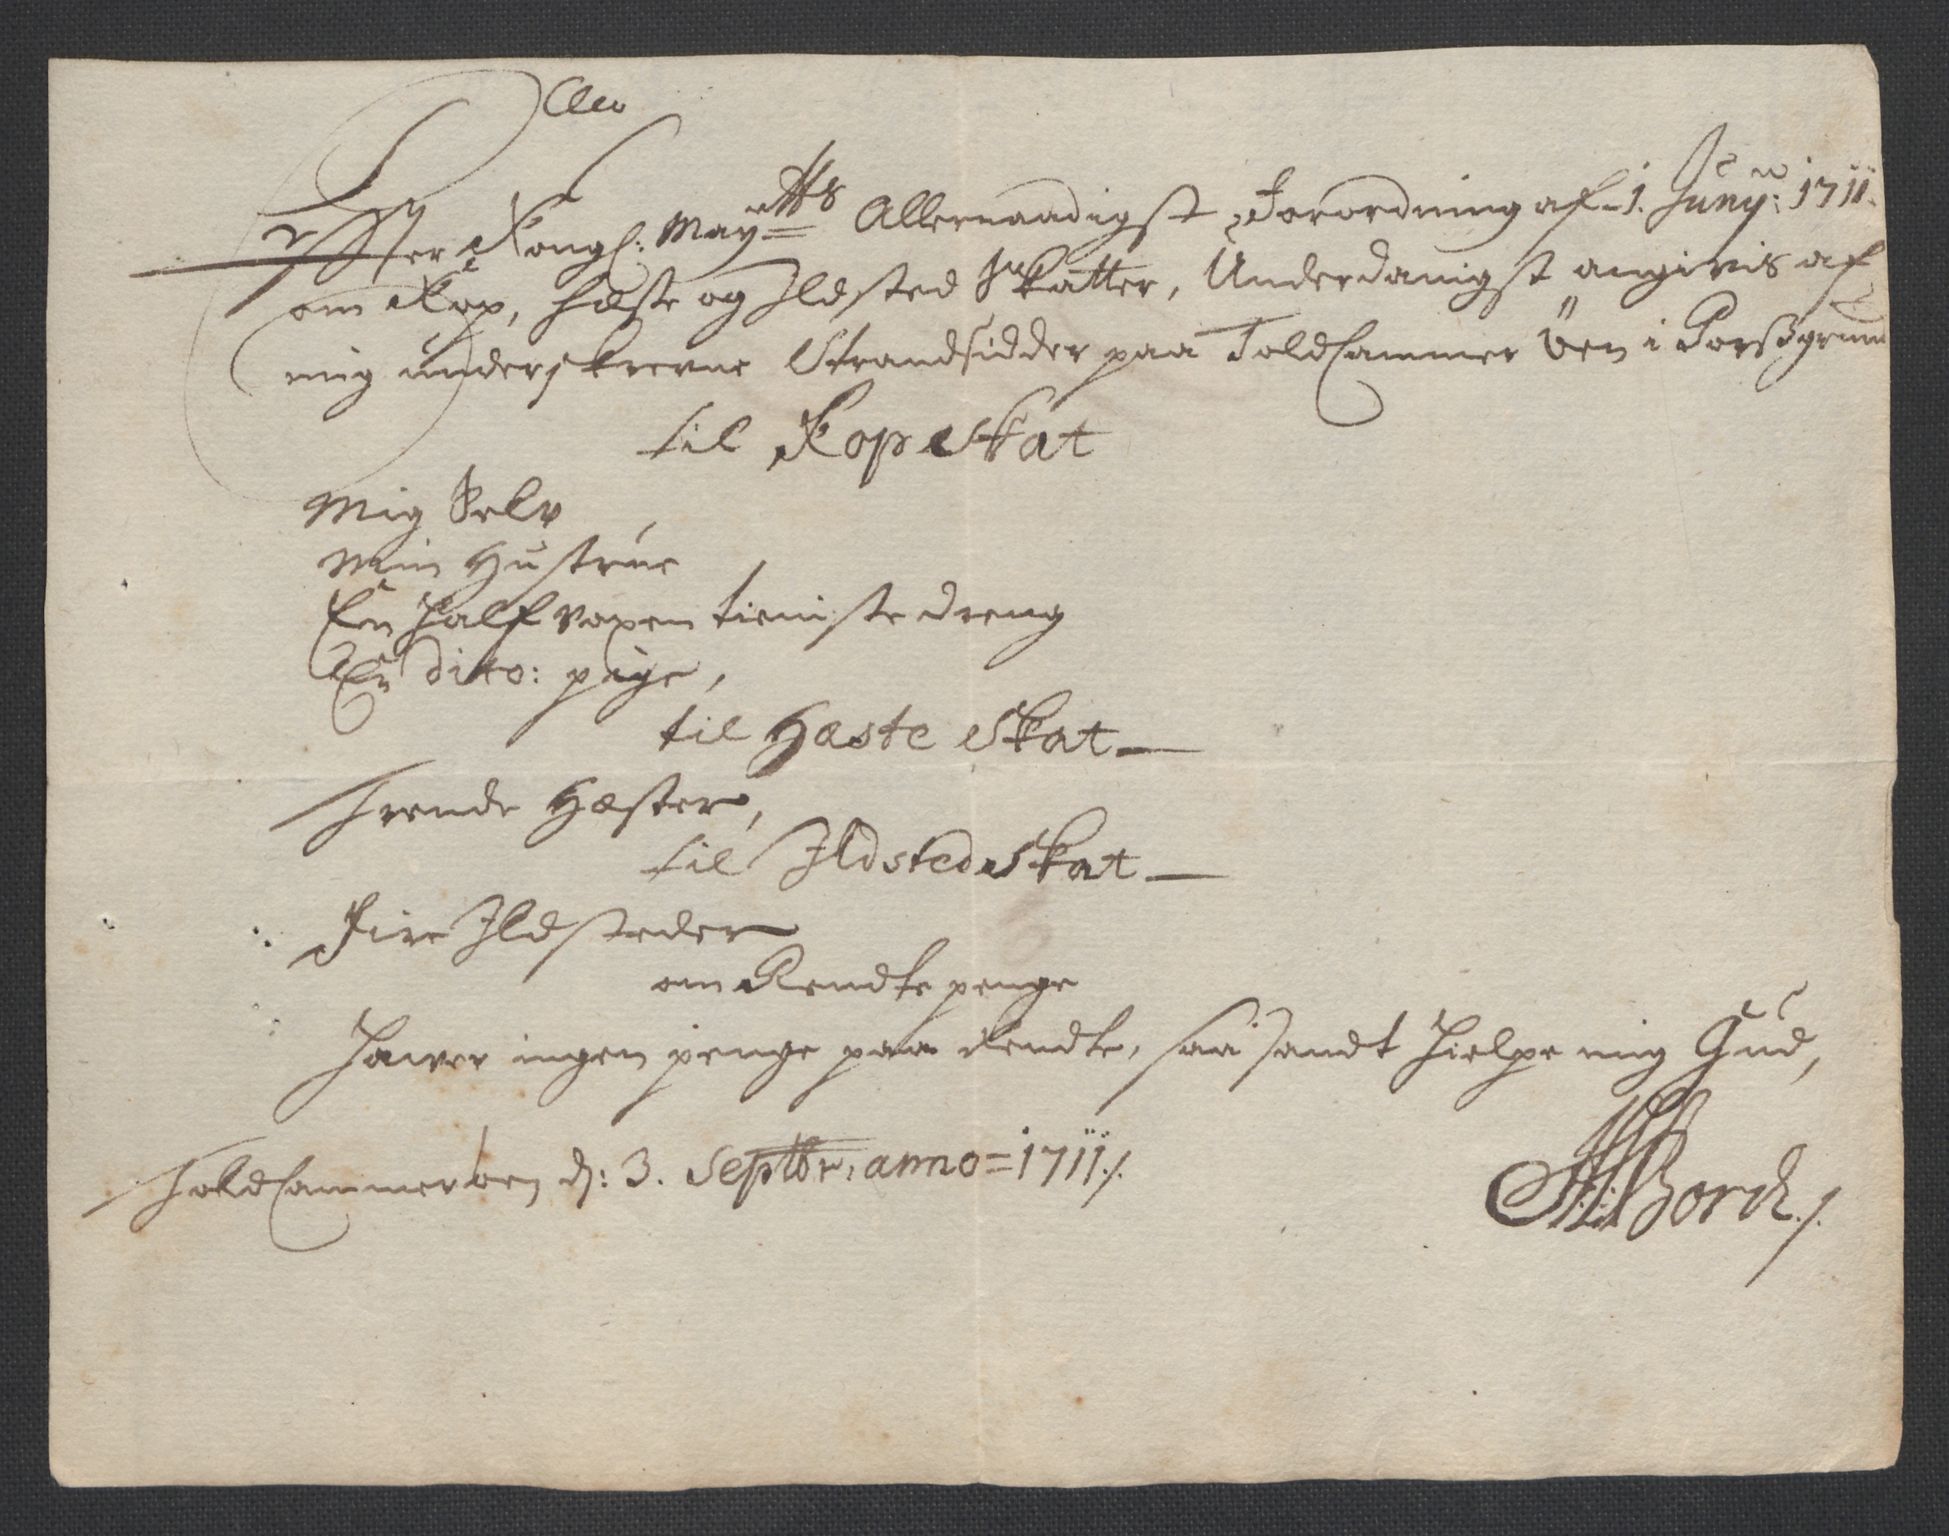 Effter Kongl: May:tts Allernaadigst Forordning af 1. Juny: 1711.
om Kop, Hæste og Ildsted Skatter, Underdanigst angivis af
mig underskrevne Strandsidder paa Toldcammer Öen i Porsgrund
til Kopskat
Mig Selv
Min Hustrue
En half voxen tieniste dreng
En dito: pige,
til Hæste Skat
Trende Hæster,
til Ildsted Skat
Fire Ildsteder
om Rendte penge
Hawer ingen penge paa Rendte, saa sandt hielpe mig Gud,
Toldcammeröen d: 3. Septbr: anno = 1711 ./.
Borch ./.